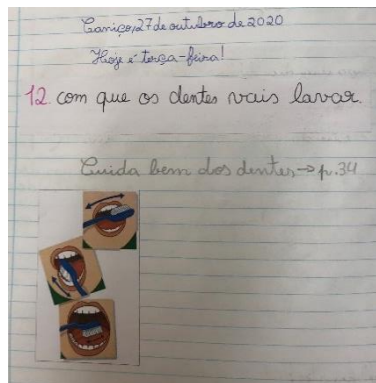 Caniço, 27 de outubro de 2020
Hoje é terça-feira!
12. com que os dentes vais lavar.
Cuida bem dos dentes → p. 34